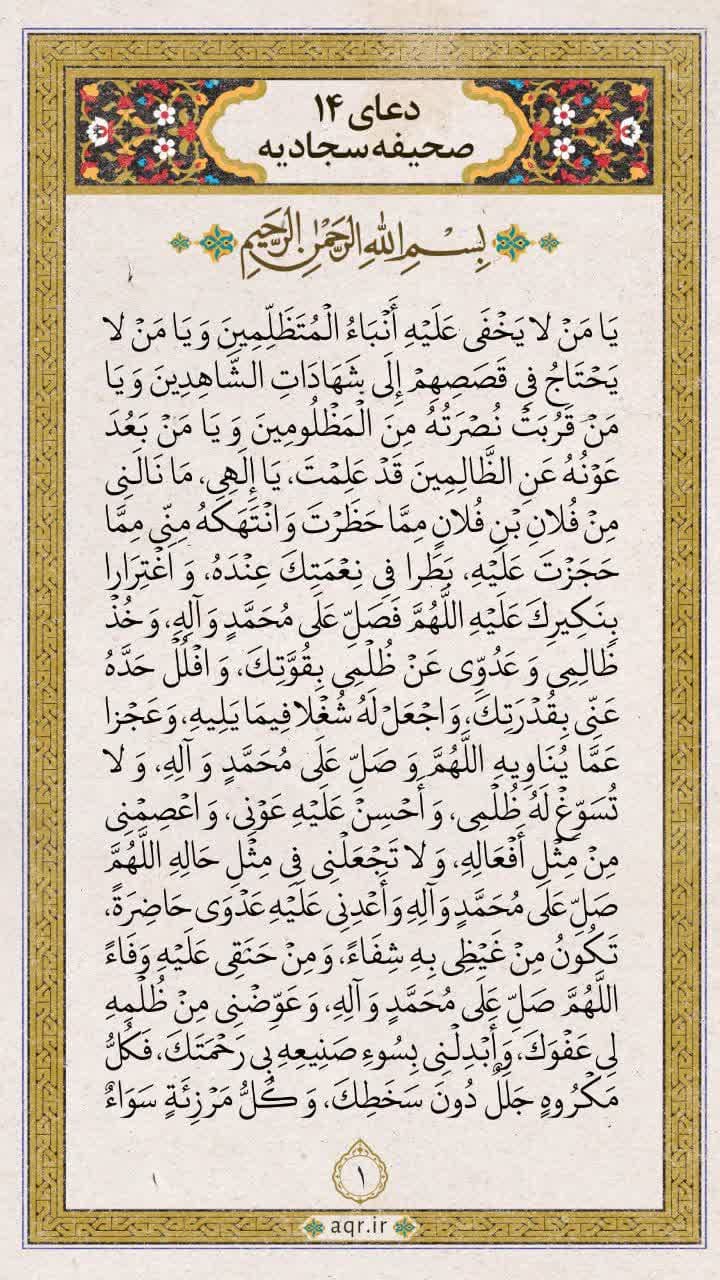 دعای ۱۴
صحیفه سجادیه
بِسْمِ اللهِ الرَّحْمٰنِ الرَّحِيمِ
يَا مَنْ لا يَخْفَى عَلَيْهِ أَنْبَاءُ الْمُتَظَلِّمِينَ وَ يَا مَنْ لا
يَحْتَاجُ فِي قَصَصِهِمْ إِلَى شَهَادَاتِ الشَّاهِدِينَ وَ يَا
مَنْ قَرُبَتْ نُصْرَتُهُ مِنَ الْمَظْلُومِينَ وَ يَا مَنْ بَعُدَ
عَوْنُهُ عَنِ الظَّالِمِينَ قَدْ عَلِمْتَ، يَا إِلَهِي، مَا نَالَنِي
مِنْ فُلانِ بْنِ فُلانٍ مِمَّا حَظَرْتَ وَ انْتَهَكَهُ مِنِّي مِمَّا
حَجَزْتَ عَلَيْهِ، بَطَرا فِي نِعْمَتِكَ عِنْدَهُ، وَ اغْتِرَارا
بِنَكِيرِكَ عَلَيْهِ اللَّهُمَّ فَصَلِّ عَلَى مُحَمَّدٍ وَ آلِهِ، وَ خُذْ
ظَالِمِي وَ عَدُوِّي عَنْ ظُلْمِي بِقُوَّتِكَ، وَ افْلُلْ حَدَّهُ
عَنِّي بِقُدْرَتِكَ، وَ اجْعَلْ لَهُ شُغْلا فِيمَا يَلِيهِ، وَ عَجْزا
عَمَّا يُنَاوِيهِ اللَّهُمَّ وَ صَلِّ عَلَى مُحَمَّدٍ وَ آلِهِ، وَ لا
تُسَوِّغْ لَهُ ظُلْمِي، وَ أَحْسِنْ عَلَيْهِ عَوْنِي، وَ اعْصِمْنِي
مِنْ مِثْلِ أَفْعَالِهِ، وَ لا تَجْعَلْنِي فِي مِثْلِ حَالِهِ اللَّهُمَّ
صَلِّ عَلَى مُحَمَّدٍ وَ آلِهِ وَ أَعْدِنِي عَلَيْهِ عَدْوَى حَاضِرَةً،
تَكُونُ مِنْ غَيْظِي بِهِ شِفَاءً، وَ مِنْ حَنَقِي عَلَيْهِ وَفَاءً
اللَّهُمَّ صَلِّ عَلَى مُحَمَّدٍ وَ آلِهِ، وَ عَوِّضْنِي مِنْ ظُلْمِهِ
لِي عَفْوَكَ، وَ أَبْدِلْنِي بِسُوءِ صَنِيعِهِ بِي رَحْمَتَكَ، فَكُلُّ
مَكْرُوهٍ جَلَلٌ دُونَ سَخَطِكَ، وَ كُلُّ مَرْزِئَةٍ سَوَاءٌ
۱
aqr.ir